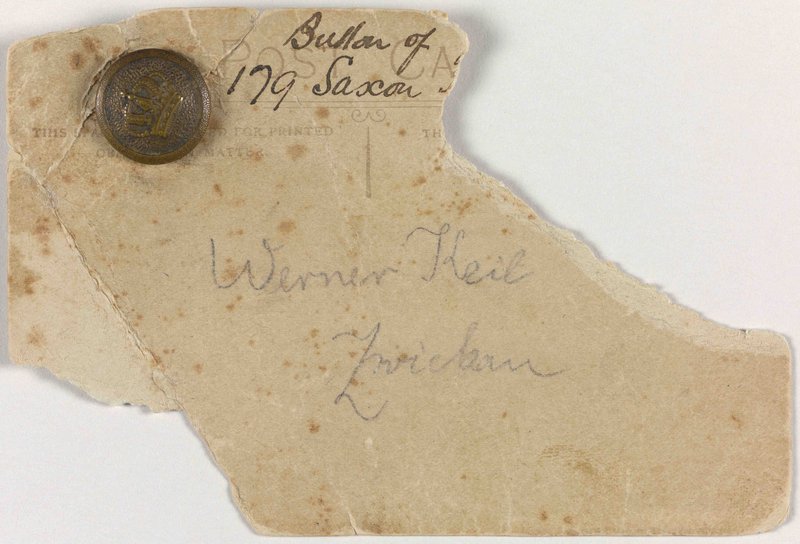 Button of
POST CA
179 Saxon
THIS SPA D FOR PRINTED
TH
MATTER.
Werner Keil
Zwickau